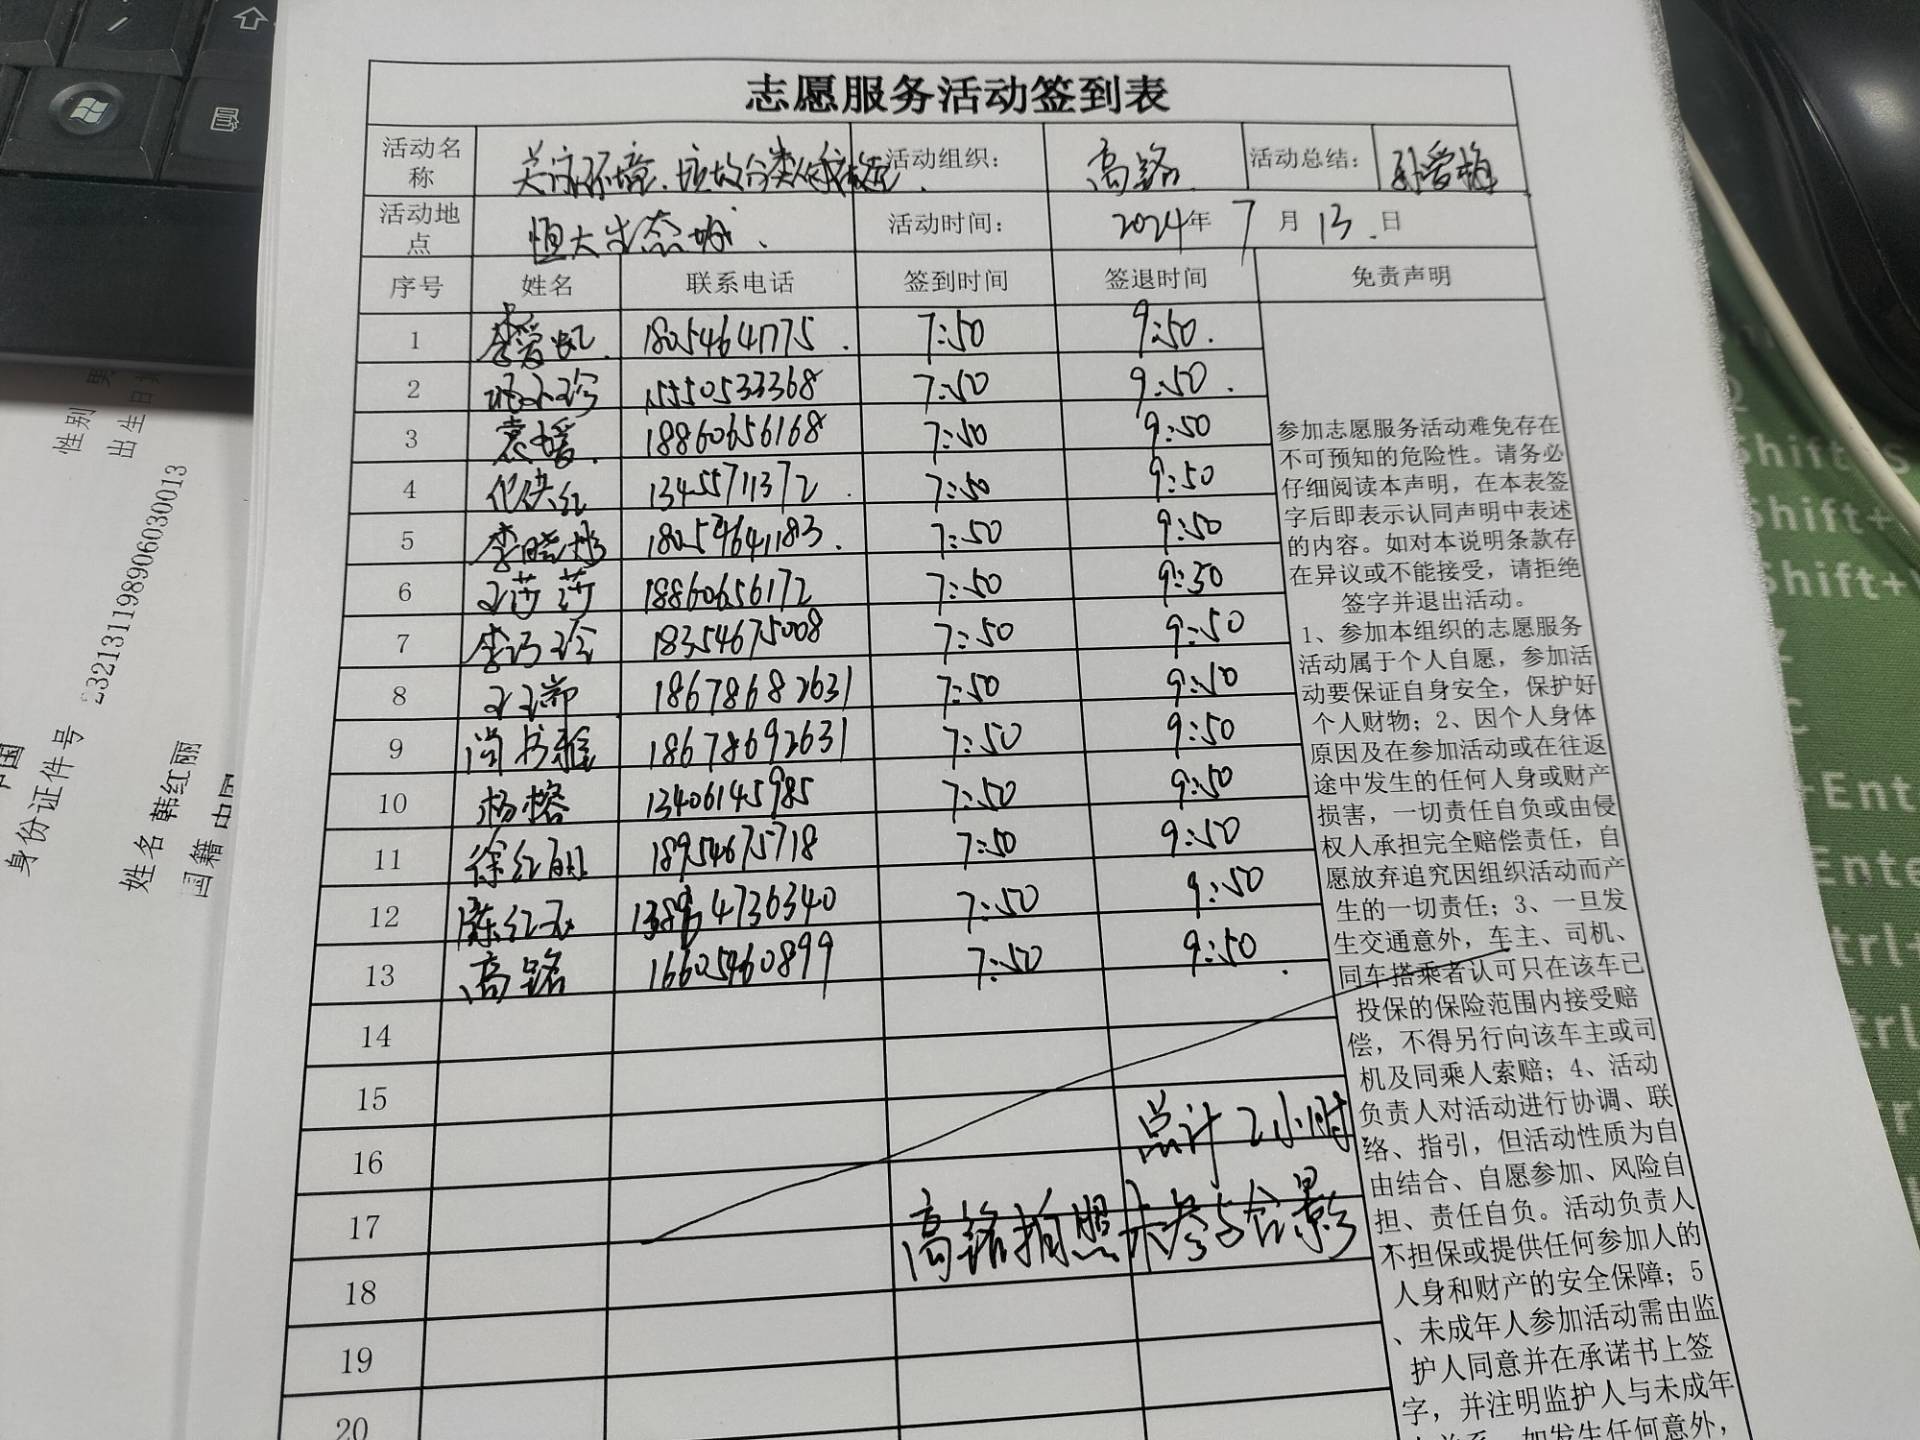 志愿服务活动签到表
活动名称 关 环境、垃圾分类 活动组织： 高铭 活动总结： 孙爱梅
活动地点 恒大生态城、 活动时间： 2024年 7 月 13 日
序号 姓名 联系电话 签到时间 签退时间 免责声明
1 李爱 18054641775 7:50 9:50
2 15550533368 7:50 9:50
3 袁媛 18860656168 7:50 9:50
4 红 13455711372 7:50 9:50
5 李晓彬 18054641183 7:50 9:50
6 王莎莎 18860656172 7:50 9:50
7 李 18354675008 7:50 9:50
8 18678682631 7:50 9:50
9 尚书雅 18678692631 7:50 9:50
10 杨榕 13406145985 7:50 9:50
11 徐红丽 18954675718 7:50 9:50
12 陈红 4736340 7:50 9:50
13 高铭 16605460899 7:50 9:50
14
15
16 总计2小时
17
18 高铭拍照未参与合影
19
20
参加志愿服务活动难免存在
不可预知的危险性。请务必
仔细阅读本声明，在本表签
字后即表示认同声明中表述
的内容。如对本说明条款存
在异议或不能接受，请拒绝
签字并退出活动。
1、参加本组织的志愿服务
活动属于个人自愿，参加活
动要保证自身安全，保护好
个人财物；2、因个人身体
原因及在参加活动或在往返
途中发生的任何人身或财产
损害，一切责任自负或由侵
权人承担完全赔偿责任，自
愿放弃追究因组织活动而产
生的一切责任；3、一旦发
生交通意外，车主、司机、
同车搭乘者认可只在该车已
投保的保险范围内接受赔
偿，不得另行向该车主或司
机及同乘人索赔；4、活动
负责人对活动进行协调、联
络、指引，但活动性质为自
由结合、自愿参加、风险自
担、责任自负。活动负责人
不担保或提供任何参加人的
人身和财产的安全保障；5
、未成年人参加活动需由监
护人同意并在承诺书上签
字，并注明监护人与未成年
如发生任何意外，
性别 男
出生日
身份证件号 232131198906030013
姓名 韩红丽
国籍 中国
Shift+S
Shift+
Shift+
+Ent
Ente